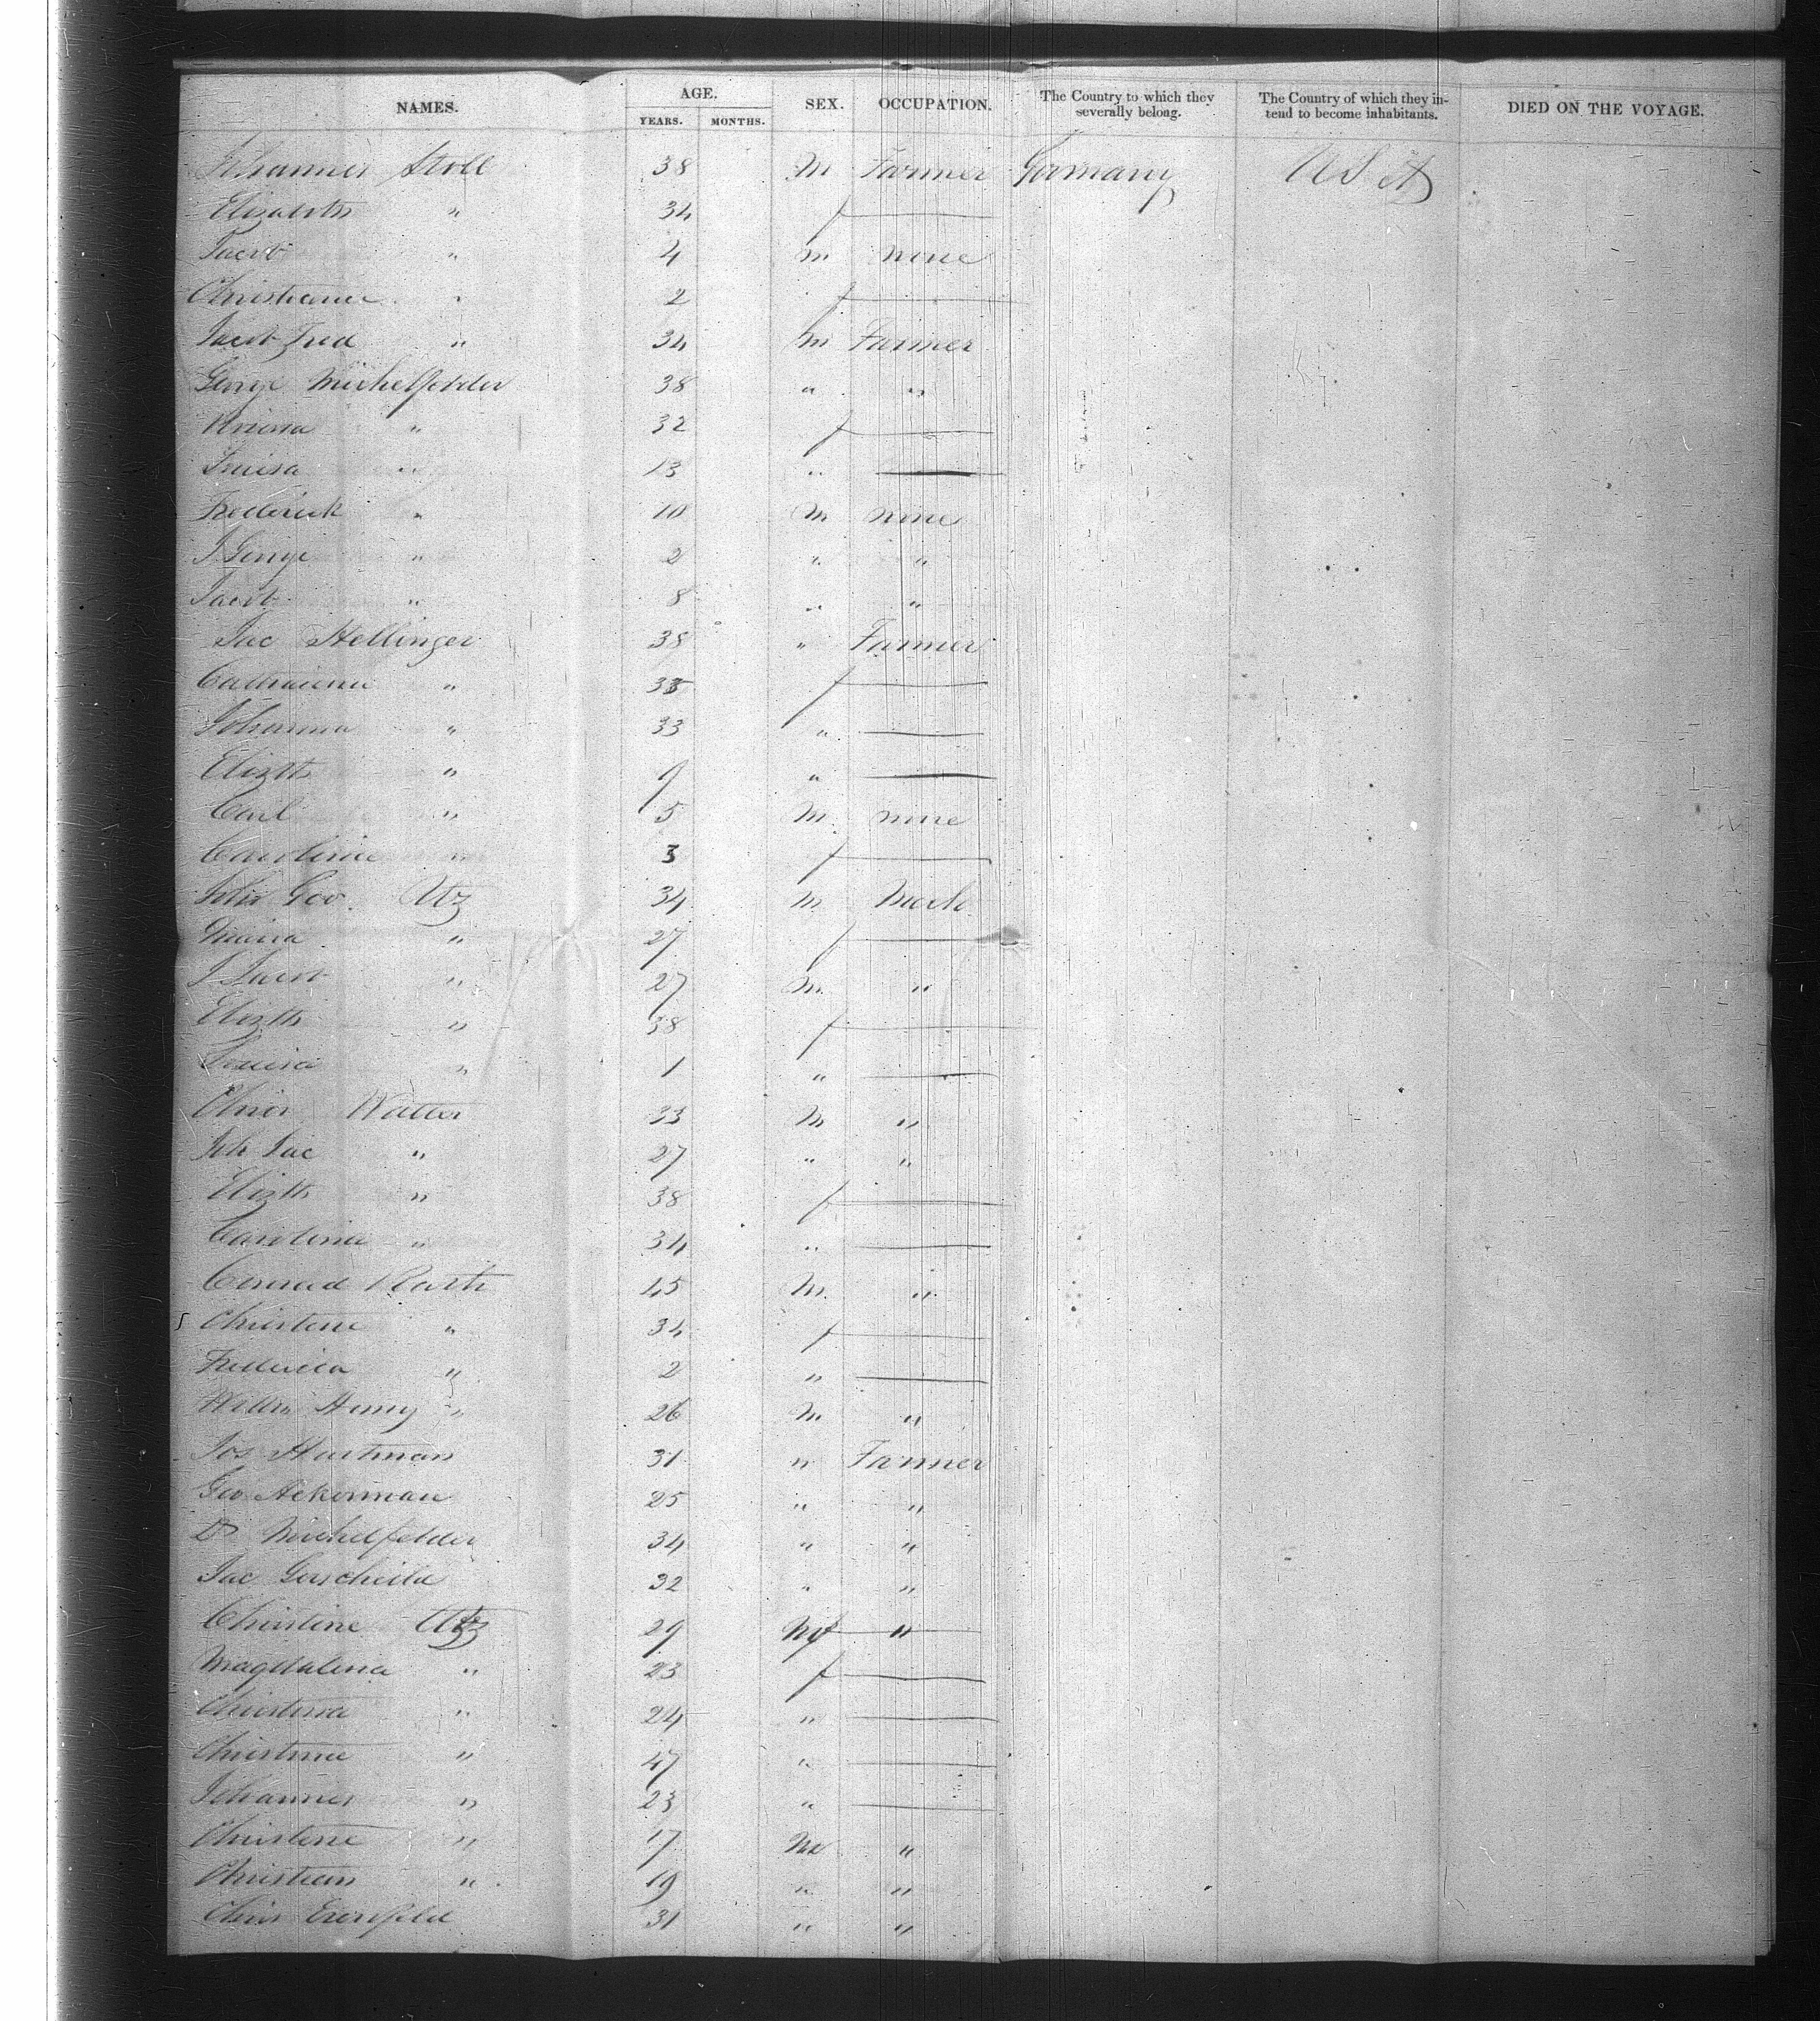 NAMES. AGE. SEX. OCCUPATION. The Country to which they severally belong. The Country of which they intend to become inhabitants. DIED ON THE VOYAGE.
YEARS. MONTHS.
Johannes Stoll 38 M Farmer Germany U S A
Elizabeth " 34 f
Jacob " 4 m none
Christiane " 2 f
Jacob Fred " 34 m Farmer
George Michelfelder 38 " "
" 32 f
Louisa " 13 "
Frederick " 10 M none
J George " 2 " "
Jacob " 8 " "
Jac Hellinger 38 " Farmer
Catharina " f
Johanna " 33 "
Elizth " 9 "
Carl " 5 M none
Carolina " 3 f
John Geo. Utz 34 M Mech
Maria " 27 f
J Jacob " 27 M "
Elizth " 38 f
Louisa " 1 "
Chris Walter 33 M "
Joh Jac " 27 " "
Elizth " 38 f
Carolina " 34 "
Conrad Rath 45 M "
Christine " 34 f
Frederica " 2 "
Willm Henry " 26 M "
Jos Hartman 31 " Farmer
Geo Ackerman 25 " "
D Michelfelder 34 " "
Jac 32 " "
Christine Utz 29 f "
Magdalena " 23 f
Christina " 24 "
Christine " 47 "
Johannes " 23 "
Christine " 17 M "
Christian " 19 " "
Chris 31 " "